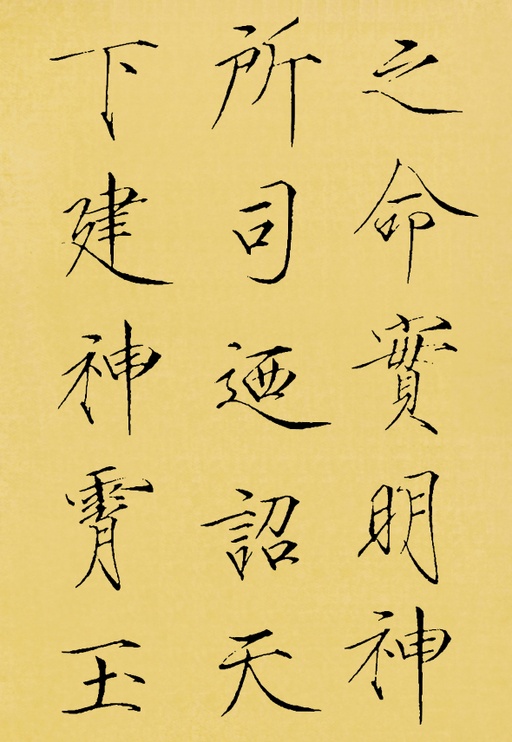 之命實明神
所司迺詔天
下建神霄玉